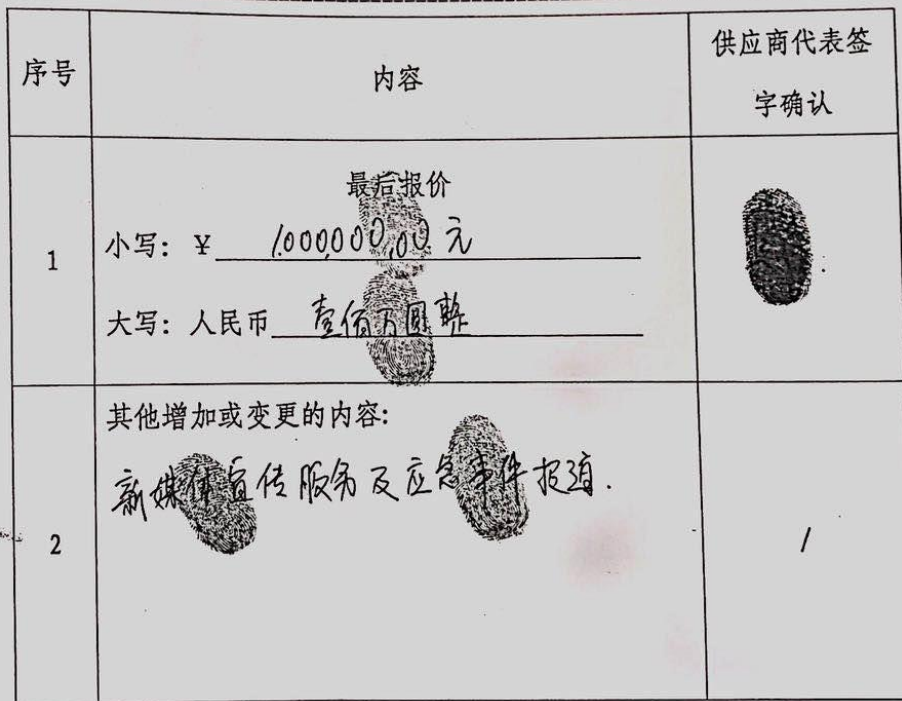 序号
内容
供应商代表签
字确认
1
最后报价
小写：￥ 1.000,000.00 元
大写：人民币 壹佰万圆整
2
其他增加或变更的内容:
新媒体宣传服务及应急事件报道.
/